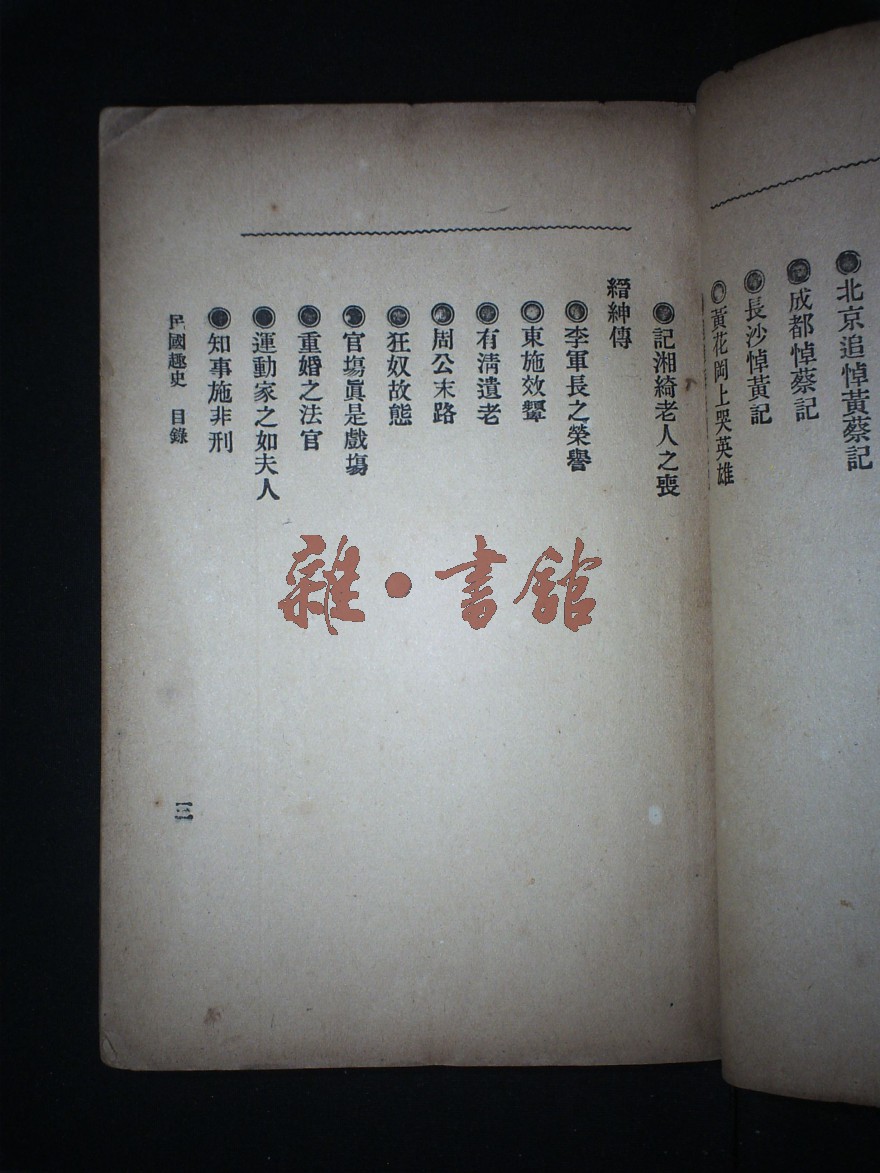 ◉北京追悼黃蔡記
◉成都悼蔡記
◉長沙悼黃記
◉黃花岡上哭英雄
◉記湘綺老人之喪
縉紳傳
◉李軍長之榮譽
◉東施效顰
◉有淸遺老
◉周公末路
◉狂奴故態
◉官塲眞是戲塲
◉重婚之法官
◉運動家之如夫人
◉知事施非刑
民國趣史 目錄
三
雜·書館